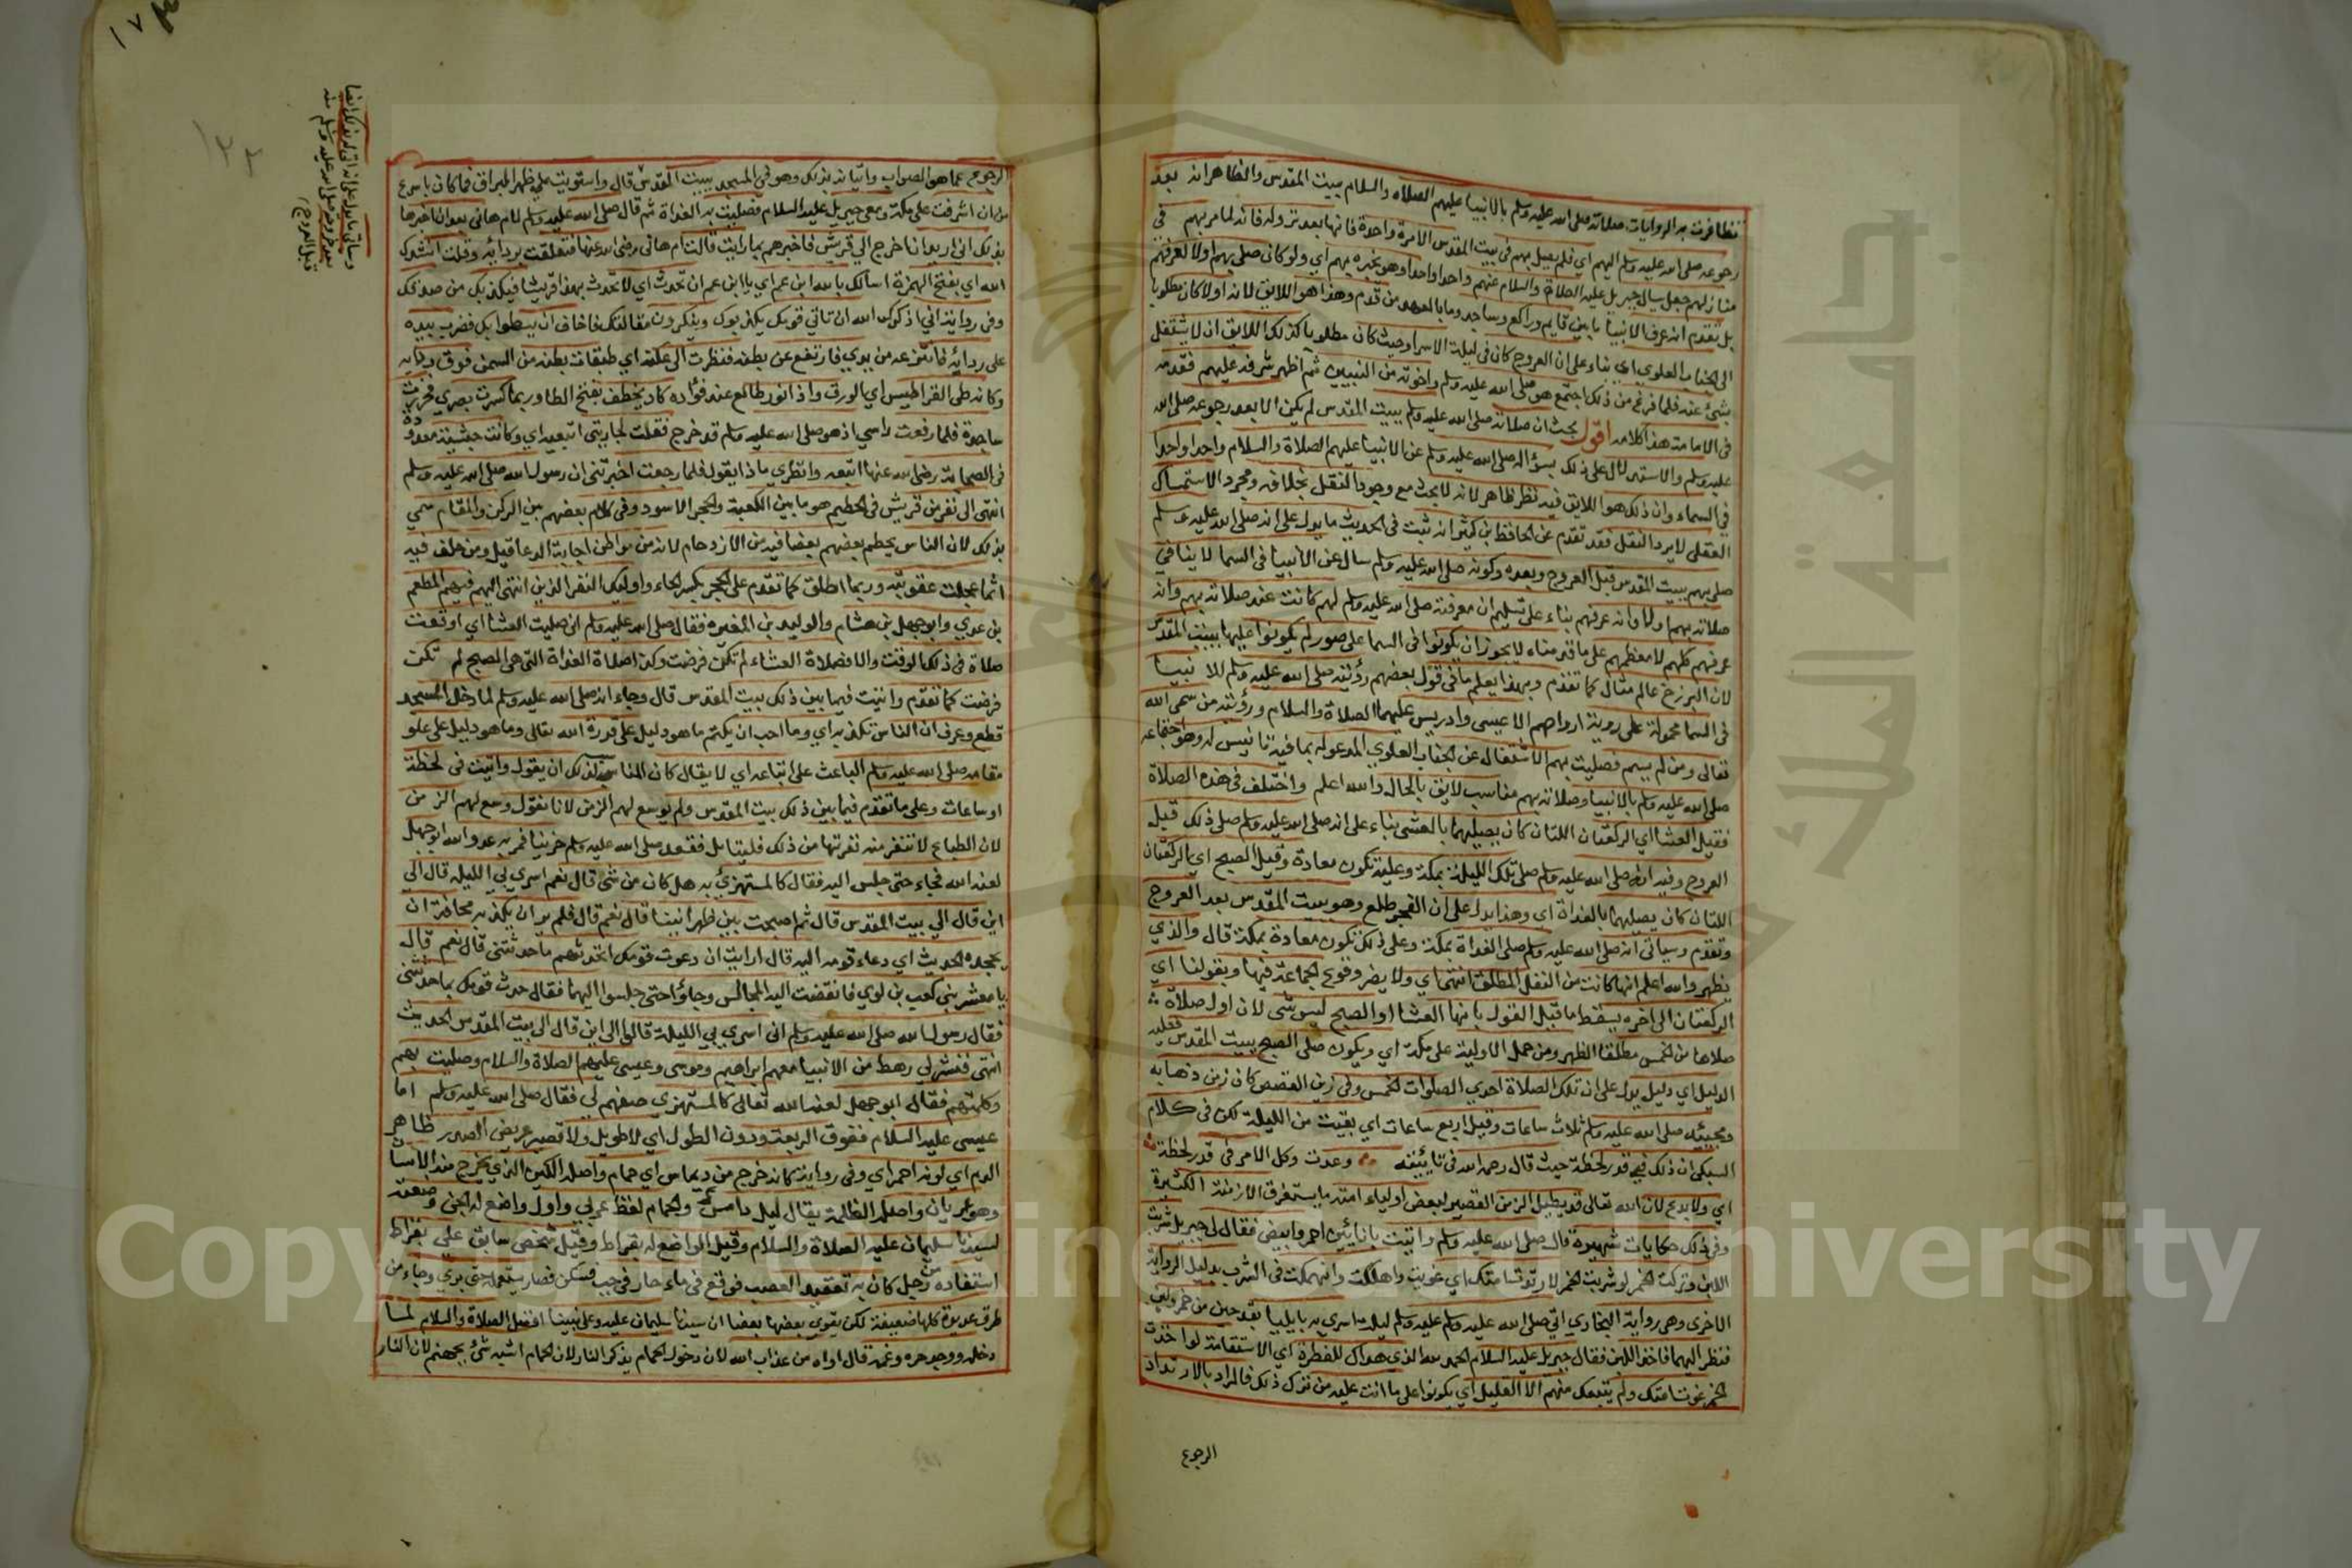 تظافرت به الروايات صلاته صلى الله عليه وسلم بالانبيا عليهم الصلاة والسلام ببيت المقدس والظاهر انه بعد
رجوعه صلى الله عليه وسلم اليهم اي فلم يصل بهم في بيت المقدس الا مرة واحدة فانها بعد نزوله فانه لما مر بهم في
منازلهم جعل يسال جبريل عليه الصلاة والسلام عنهم واحدا واحدا وهو يخبره بهم اي ولو كان صلى بهم اولا لعرفهم
بل تقدم انه عرف الانبيا ما بين قايم وراكع وساجد وما بالعهد من قدم وهذا هو اللايق لانه اولا كان مطلوبا
الى الجناب العلوي اي بناء على ان العروج كان في ليلة الاسرا وحيث كان مطلوبا كذلك اللايق ان لا يشتغل
بشيء عنه فلما فرغ من ذلك اجتمع هو صلى الله عليه وسلم واخوته من النبيين ثم اظهر شرفه عليهم فقدمه
في الامامة هذا كلامه اقول بحث ان صلاته صلى الله عليه وسلم ببيت المقدس لم يكن الا بعد رجوعه صلى الله
عليه وسلم والاستدلال على ذلك بسؤاله صلى الله عليه وسلم عن الانبيا عليهم الصلاة والسلام واحدا واحدا
في السماء وان ذلك هو اللايق فيه نظر ظاهر لانه لا بحث مع وجود النقل بخلافه ومجرد الاستمساك
العقلى لا يرد النقل فقد تقدم عن الحافظ بن كثير انه ثبت في الحديث ما يدل على انه صلى الله عليه وسلم
صلى بهم ببيت المقدس قبل العروج وبعده وكونه صلى الله عليه وسلم سال عن الانبيا في السما لا ينافي
صلاته بهم اولا وانه عرفهم بناء على تسليم ان معرفته صلى الله عليه وسلم لهم كانت عند صلاته بهم وانه
عرفهم كلهم لا معظمهم على ما قدمناه لا يجوز ان يكونوا في السما على صور لم يكونوا عليها ببيت المقدس
لان البرزخ عالم مثال كما تقدم وبهذا يعلم ما في قول بعضهم رؤيته صلى الله عليه وسلم للانبيا
في السما محمولة على روية ارواحهم الا عيسى وادريس عليهما الصلاة والسلام ورؤيته من سمى الله
تعالى ومن لم يسم فصليت بهم الاشتغال عن الجناب العلوي المدعو له بما فيه تانيس له وهو اجتماعه
صلى الله عليه وسلم بالانبيا وصلاته بهم مناسب لايق بالحال والله اعلم واختلف في هذه الصلاة
فقيل العشا اي الركعتان اللتان كان يصليهما بالعشى بناء على انه صلى الله عليه وسلم صلى ذلك قبل
العروج وفيه انه صلى الله عليه وسلم صلى تلك الليلة بمكة وعليه تكون معادة وقيل الصبح اي الركعتان
اللتان كان يصليهما بالغداة اي وهذا يدل على ان الفجر طلع وهو ببيت المقدس بعد العروج
وتقدم وسياتى انه صلى الله عليه وسلم صلى الغداة بمكة وعلى ذلك تكون معادة بمكة قال والذي
يظهر والله اعلم انها كانت من النفل المطلق انتهى اي ولا يضر وقوع الجماعة فيها وبقولنا اي
الركعتان الى اخره يسقط ما قيل القول بانها العشا او الصبح ليس بشى لان اول صلاة
صلاها من الخمس مطلقا الظهر ومن حمل الاولية على مكة اي ويكون صلى الصبح ببيت المقدس فعليه
الدليل اي دليل يدل على ان تلك الصلاة احدي الصلوات الخمس وفي زين القصص كان زمن ذهابه
ومجيئه صلى الله عليه وسلم ثلاث ساعات وقيل اربع ساعات اي بقيت من الليلة لكن في كلام
السبكي ان ذلك في قدر لحظة حيث قال رحمه الله في تائيته وعدت وكل الامر في قدر لحظة
اي ولا بدع لان الله تعالى قد يطيل الزمن القصير لبعض اولياء امته ما يستغرق الازمنة الكثيرة
وفي ذلك حكايات شهيرة قال صلى الله عليه وسلم واتيت بانائين احمر وابيض فقال لي جبريل شربت
اللبن وتركت الخمر لو شربت الخمر لارتدت امتك اي غويت واهلكت وانهمكت في الشرب بدليل الرواية
الاخرى وهي رواية البخاري اتي صلى الله عليه وسلم عليه وسلم ليلة اسري به بايليا بقدحين من خمر ولبن
فنظر اليهما فاخذ اللبن فقال جبريل عليه السلام الحمد لله الذي هداك للفطرة اي الاستقامة لو اخذت
الخمر غوت امتك ولم يتبعك منهم الا القليل اي يكونوا على ما انت عليه من ترك ذلك فالمراد بالارتداد
الرجوع
الرجوع عما هو الصواب واتيانه بذلك وهو في المسجد ببيت المقدس قال واستويت على ظهر البراق فما كان باسرع
من ان اشرفت على مكة ومعي جبريل عليه السلام فصليت به الغداة ثم قال صلى الله عليه وسلم لام هاني بعد ان اخبرها
بذلك اني اريد ان اخرج الي قريش فاخبرهم بما رايت قالت ام هاني رضى الله عنها فتعلقت بردائه وقلت انشدك
الله اي بفتح الهمزة اسالك بالله ابن عم اي يا ابن عم ان تحدث اي لا تحدث بهذا قريشا فيكذبك من صدقك
وفي رواية اني اذكرك الله ان تاتي قومك يكذبوك وينكرون مقالتك فاخاف ان يسطوا بك فضرب بيده
على ردائه فانتزعه من يدي فارتفع عن بطنه فنظرت الى عكنه اي طبقات بطنه من السمن فوق ردائه
وكانه طي القراطيس اي الورق واذا نور طالع عند فؤاده كاد يخطف بفتح الطا وربما كسرت بصري فخررت
ساجدة فلما رفعت راسي اذ هو صلى الله عليه وسلم قد خرج فقلت لجاريتى اتبعيه اي وكانت حبشية معدودة
في الصحابة رضى الله عنها اتبعه وانظري ماذا يقول فلما رجعت اخبرتنى ان رسول الله صلى الله عليه وسلم
انتهى الى نفر من قريش في الحطيم هو ما بين الكعبة والحجر الاسود وفي كلام بعضهم بين الركن والمقام سمي
بذلك لان الناس يحطم بعضهم بعضا فيه من الازدحام لانه من مواطن اجابة الدعا قيل ومن حلف فيه
اثما عجلت عقوبته وربما اطلق كما تقدم على الحجر بكسر الحاء واوليك النفر الذين انتهى اليهم فيهم المطعم
بن عدي وابو جهل بن هشام والوليد بن المغيرة فقال صلى الله عليه وسلم انى صليت العشا اي اوقعت
صلاة في ذلك الوقت والا فصلاة العشاء لم تكن فرضت وكذا صلاة الغداة التى هى الصبح لم تكن
فرضت كما تقدم واتيت فيما بين ذلك بيت المقدس قال وجاء انه صلى الله عليه وسلم لما دخل المسجد
قطع وعرف ان الناس تكذبه اي وما احب ان يكتم ما هو دليل على قدرة الله تعالى وما هو دليل على علو
مقامه صلى الله عليه وسلم الباعث على اتباعه اي لا يقال كان المناسب لذلك ان يقول واتيت في لحظة
او ساعات وعلى ما تقدم فيما بين ذلك بيت المقدس ولم يوسع لهم الزمن لانا نقول وسع لهم الزمن
لان الطباع لا تنفر منه نفرتها من ذلك فليتامل فقعد صلى الله عليه وسلم حزينا فمر به عدو الله ابو جهل
لعنه الله فجاء حتى جلس اليه فقال كالمستهزئ به هل كان من شئ قال نعم اسري بي الليلة قال الي
اين قال الي بيت المقدس قال ثم اصبحت بين ظهرانينا قال نعم قال فلم ير ان يكذبه مخافة ان
يجحده الحديث اي دعاء قومه اليه قال ارايت ان دعوت قومك اتحدثهم ما حدثتنى قال نعم قال
يا معشر بني كعب بن لوي فانقضت اليه المجالس وجاؤا حتى جلسوا اليهما فقال حدث قومك بما حدثتنى
فقال رسول الله صلى الله عليه وسلم انى اسري بي الليلة قالوا الى اين قال الى بيت المقدس الحديث
انتهى فنشر لي رهط من الانبيا منهم ابراهيم وموسى وعيسى عليهم الصلاة والسلام وصليت بهم
وكلمتهم فقال ابو جهل لعنه الله تعالى كالمستهزي صفهم لي فقال صلى الله عليه وسلم اما
عيسى عليه السلام ففوق الربعة ودون الطول اي لا طويل ولا قصير عريض الصدر ظاهر
الدم اي لونه احمر اي وفي رواية كانه خرج من ديماس اي حمام واصله الكن الذي يخرج منه الانسان
وهو عريان واصله الظلمة يقال ليل دامس والحمام لفظ عربي واول واضع له الجن وصنعته
لسيدنا سليمان عليه الصلاة والسلام وقيل الواضع له بقراط وقيل شخص سابق على بقراط
استفاده من رجل كان به تعقيد العصب فوقع في ماء حار في جب فسكن فصار يستعمله حتى برى وجاء من
طرق عديدة كلها ضعيفة لكن يقوي بعضها بعضا ان سيدنا سليمان عليه وعلى نبينا افضل الصلاة والسلام لما
دخله ووجد حره وغمه قال اواه من عذاب الله لان دخول الحمام يذكر النار لان الحمام اشبه شئ بجهنم لان النار
وسياتي ما يدل على انه اتى له بذلك ايضا
بعد خروجه صلى الله عليه وسلم منه
قبل العروج
١٧
١٣٣
جامعة الملك سعود
Copyright © King Saud University